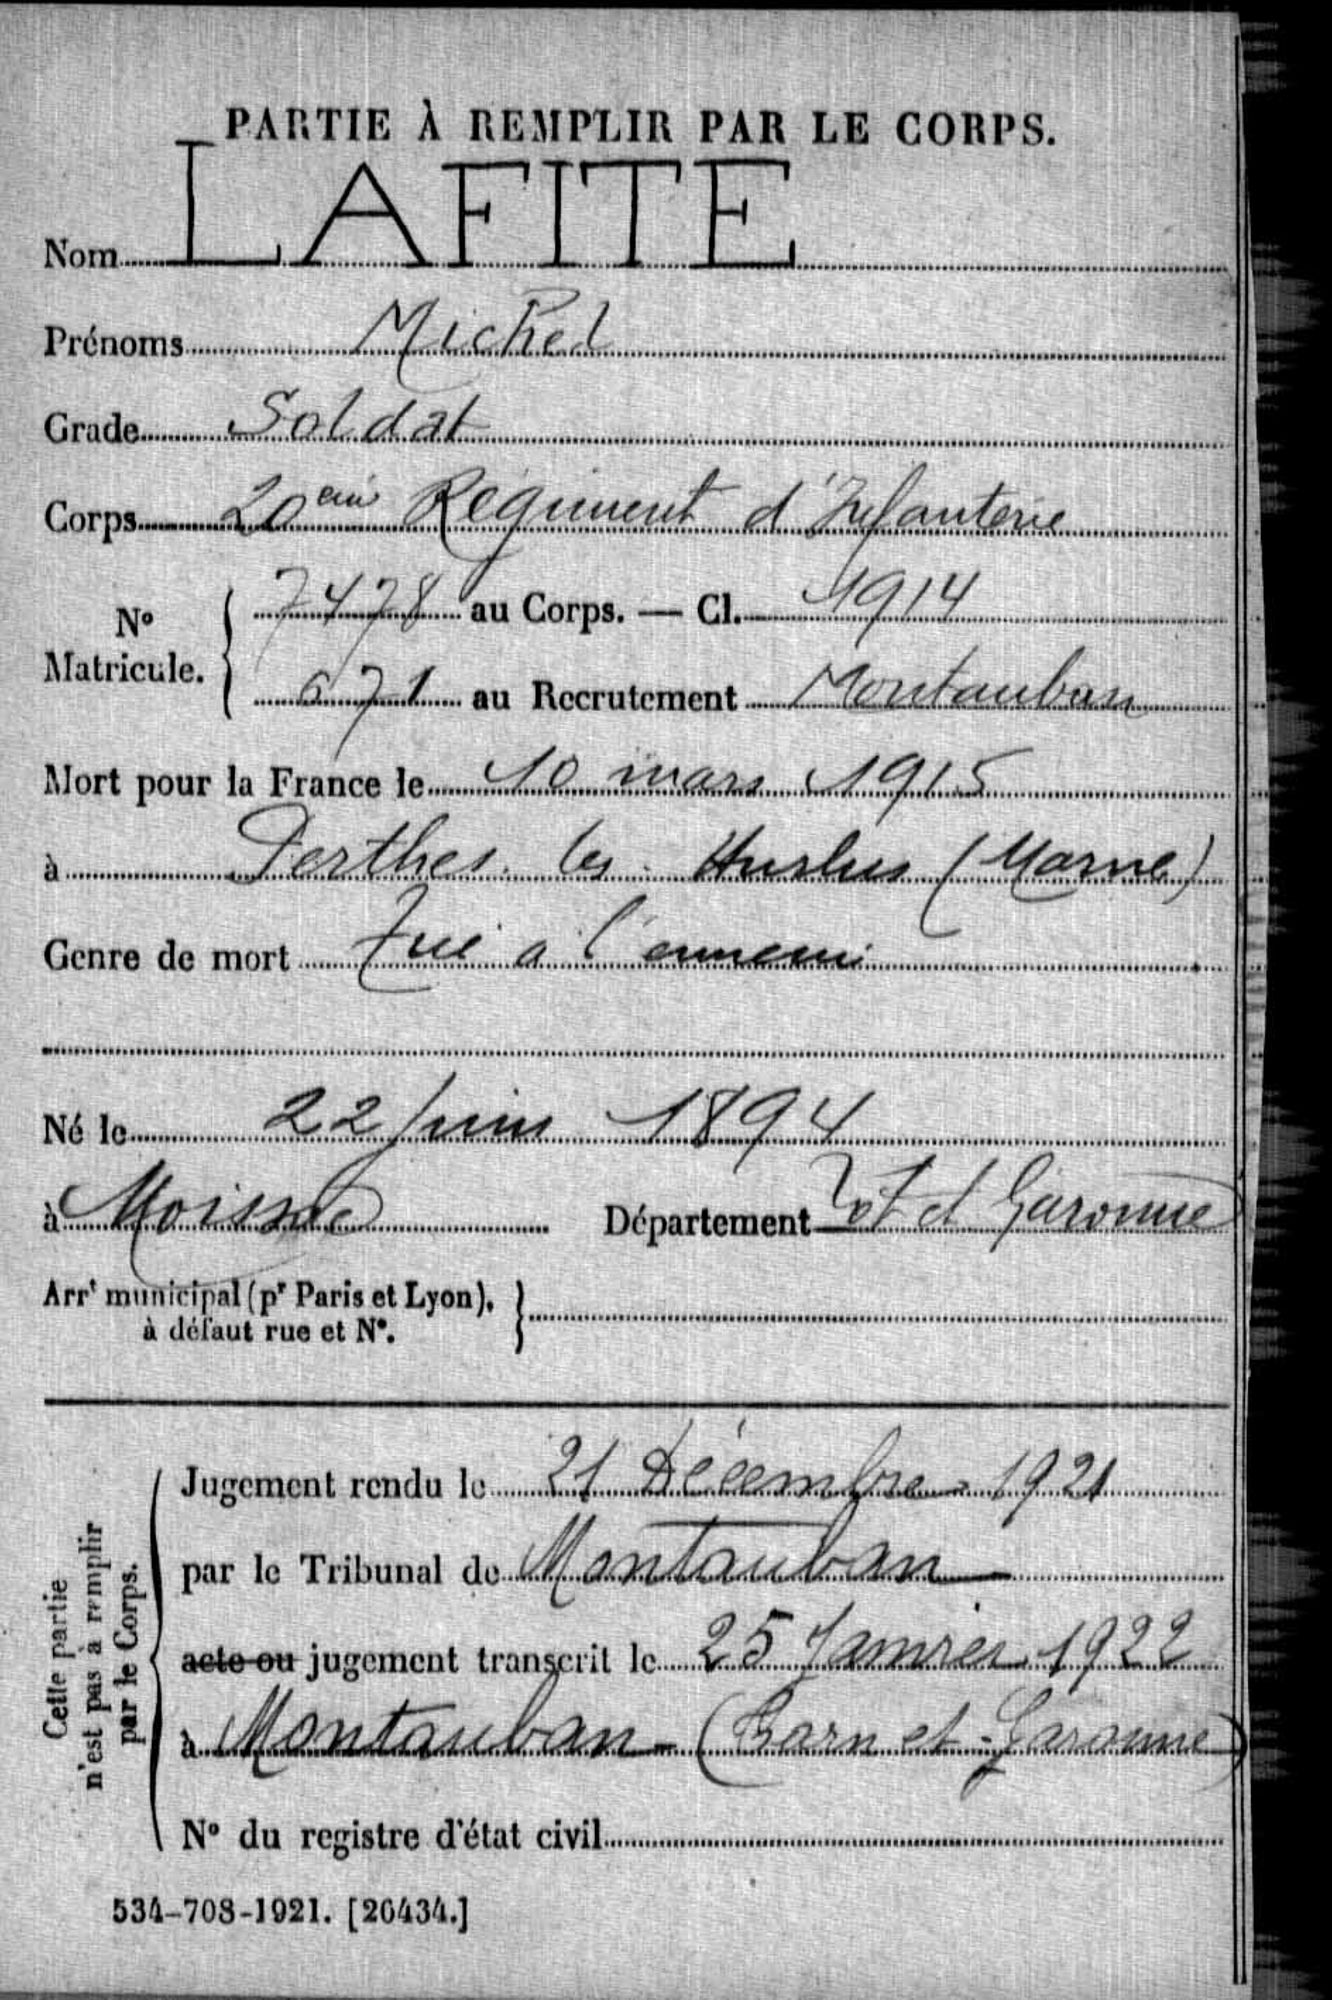 PARTIE À REMPLIR PAR LE CORPS.
Nom LAFITE
Prénoms Michel
Grade Soldat
Corps 20eme Régiment d'Infanterie
No Matricule. { 7478 au Corps. — Cl. 1914
671 au Recrutement Montauban
Mort pour la France le 10 mars 1915
à Perthes les Hurlus (Marne)
Genre de mort Tué a l'ennemi
Né le 22 Juin 1894
à Département Lot et Garonne
Arrt municipal (pr Paris et Lyon), }
à défaut rue et No.
Cette partie
n'est pas à remplir
par le Corps.
Jugement rendu le 21 Décembre 1921
par le Tribunal de Montauban
acte ou jugement transcrit le 25 Janvier 1922
à Montauban - (Tarn et-Garonne)
No du registre d'état civil
534-708-1921. [26434.]